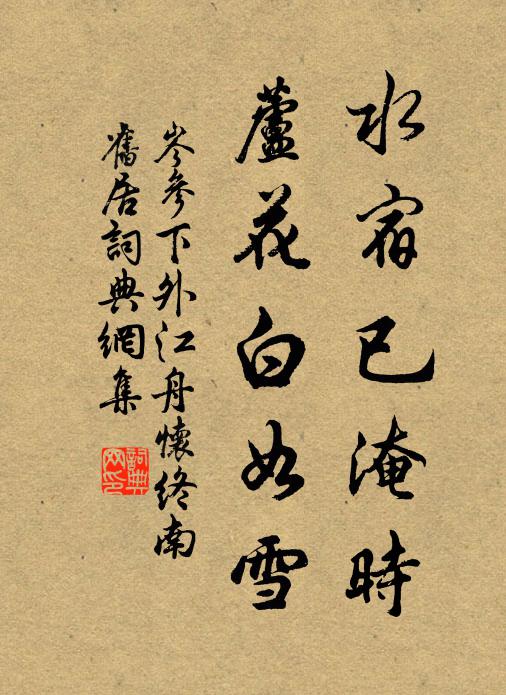 水宿已淹時
蘆花白如雪
岑參下外江舟懷終南
舊居詞典網集
詞典
网印